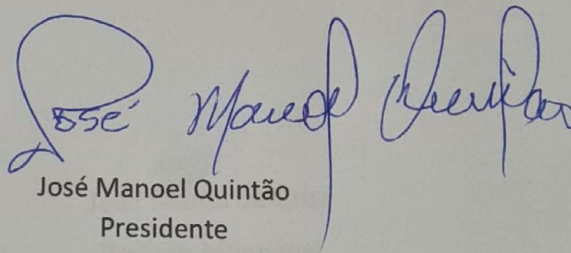 José Manoel Quintão
José Manoel Quintão
Presidente